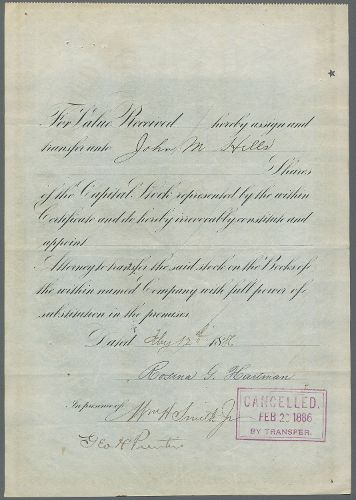 For Value Received I hereby assign and
transfer unto John M Hills
Shares
of the Capital Stock represented by the within
Certificate and do hereby irrevocably constitute and
appoint
Attorney to transfer the said stock on the Books of
the within named Company with full power of
substitution in the premises
Dated Feby 12th 188
Rosina G. Hartman
In presence of Wm H Smith Jr
Geo H
CANCELLED.
FEB 20 1886
BY TRANSFER.